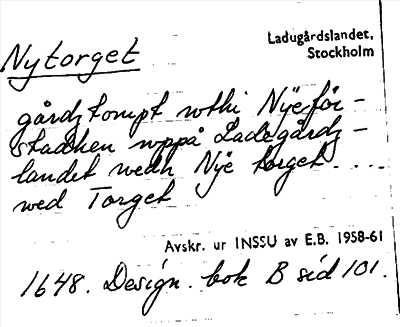 Nytorget
Ladugårdslandet,
Stockholm
gårdztompt vthi Nÿeför-
stadhen vppå Ladegårdz-
landet wedh Nÿe torget. ...
wed Torget
Avskr. ur INSSU av E.B. 1958-61
1648. Design. bok B sid 101.